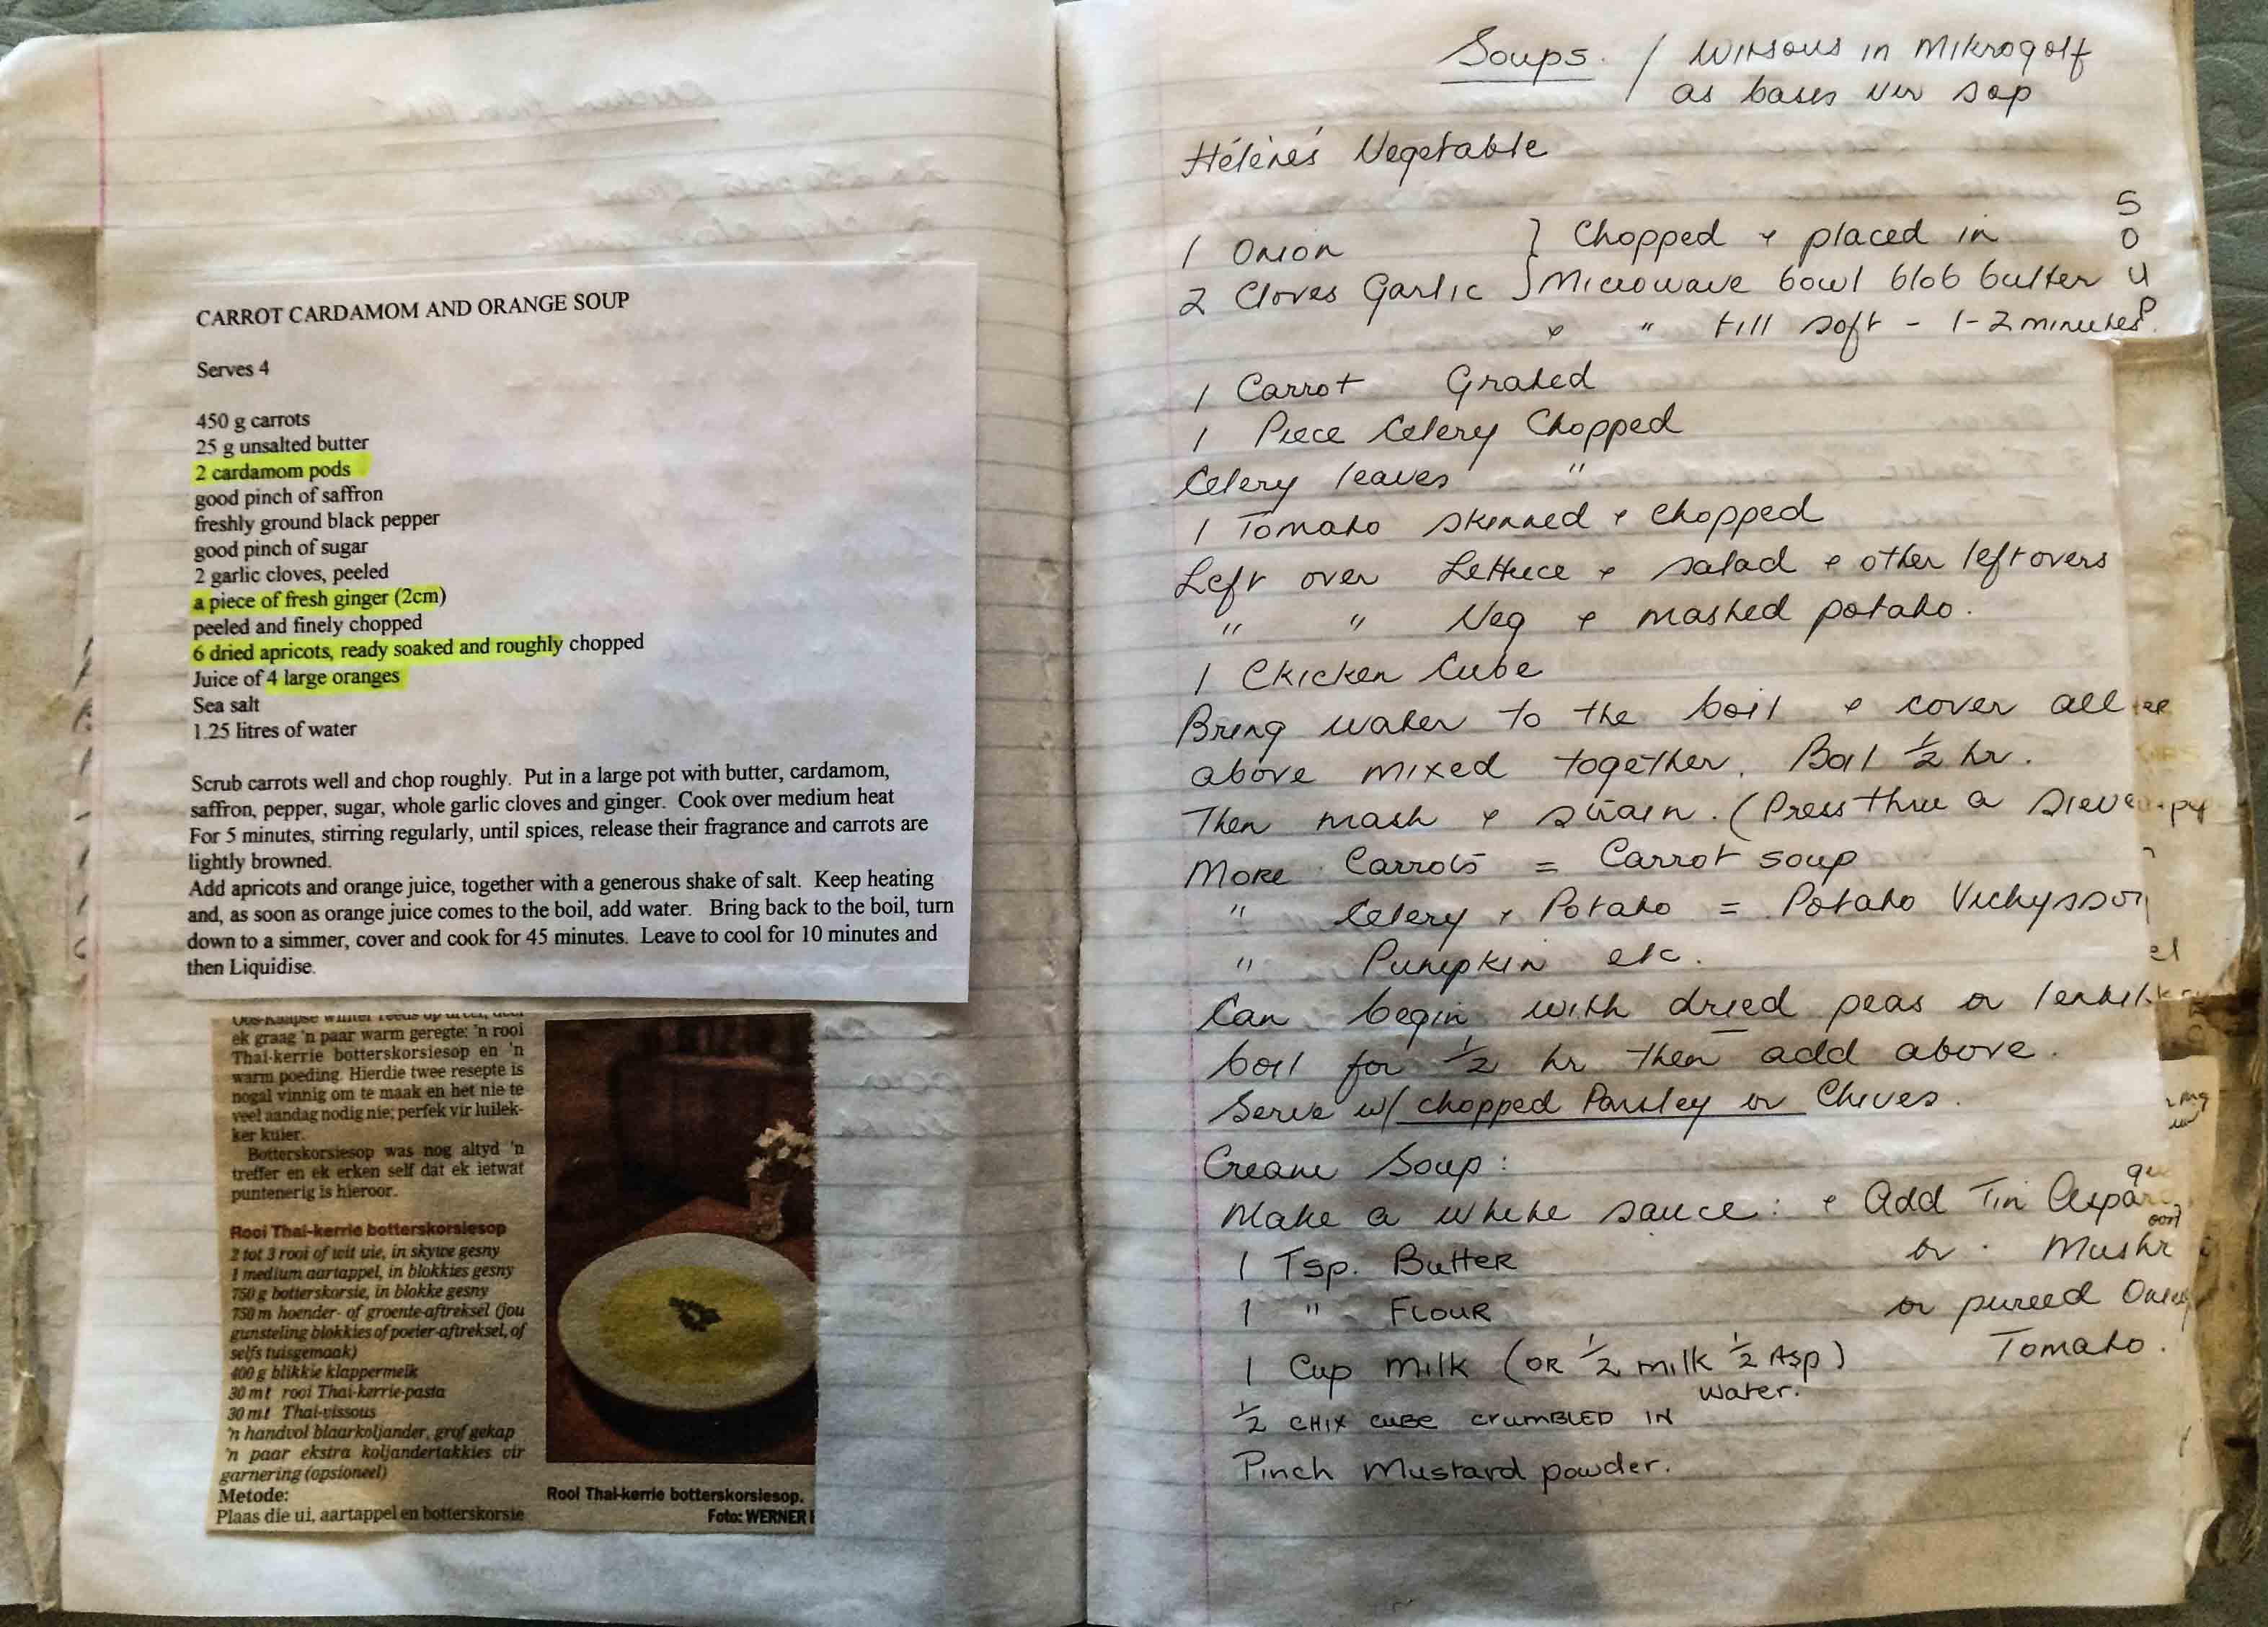 CARROT CARDAMOM AND ORANGE SOUP
Serves 4
450 g carrots
25 g unsalted butter
2 cardamom pods
good pinch of saffron
freshly ground black pepper
good pinch of sugar
2 garlic cloves, peeled
a piece of fresh ginger (2cm)
peeled and finely chopped
6 dried apricots, ready soaked and roughly chopped
Juice of 4 large oranges
Sea salt
1.25 litres of water
Scrub carrots well and chop roughly. Put in a large pot with butter, cardamom,
saffron, pepper, sugar, whole garlic cloves and ginger. Cook over medium heat
For 5 minutes, stirring regularly, until spices, release their fragrance and carrots are
lightly browned.
Add apricots and orange juice, together with a generous shake of salt. Keep heating
and, as soon as orange juice comes to the boil, add water. Bring back to the boil, turn
down to a simmer, cover and cook for 45 minutes. Leave to cool for 10 minutes and
then Liquidise.
ek graag 'n paar warm geregte: 'n rooi
Thai-kerrie botterskorsiesop en 'n
warm poeding. Hierdie twee resepte is
nogal vinnig om te maak en het nie te
veel aandag nodig nie; perfek vir luilek-
ker kuier.
Botterskorsiesop was nog altyd 'n
treffer en ek erken self dat ek ietwat
puntenerig is hieroor.
Rooi Thai-kerrie botterskorsiesop
2 tot 3 rooi of wit uie, in skywe gesny
1 medium aartappel, in blokkies gesny
750 g botterskorsie, in blokke gesny
750 m hoender- of groente-aftreksel (jou
gunsteling blokkies of poeier-aftreksel, of
selfs tuisgemaak)
400 g blikkie klappermelk
30 ml rooi Thai-kerrie-pasta
30 ml Thai-vissous
'n handvol blaarkoljander, grof gekap
'n paar ekstra koljandertakkies vir
garnering (opsioneel)
Metode:
Plaas die ui, aartappel en botterskorsie
Rooi Thai-kerrie botterskorsiesop.
Foto: WERNER
Soups. / Witsous in Mikrogolf
as basis vir sop
Hélène's Vegetable
SOUP
1 Onion } Chopped + placed in
2 Cloves Garlic } Microwave bowl blob butter
+ " till soft - 1-2 minutes.
1 Carrot Grated
1 Piece Celery Chopped
Celery leaves "
1 Tomato skinned + chopped
Left over Lettuce + salad + other left overs
" " Veg + mashed potato.
1 Chicken Cube
Bring water to the boil + cover all
above mixed together. Boil ½ hr.
Then mash + strain. (Press thru a sieve
More Carrots = Carrot soup
" Celery + Potato = Potato
" Pumpkin etc.
Can begin with dried peas or
boil for ½ hr then add above.
Serve w/ chopped Parsley or Chives.
Cream Soup:
Make a white sauce: + Add Tin
1 Tsp. Butter or
1 " FLOUR or pureed
1 Cup Milk (OR ½ milk ½ Asp) Tomato.
water.
½ CHIX CUBE CRUMBLED IN
Pinch Mustard powder.